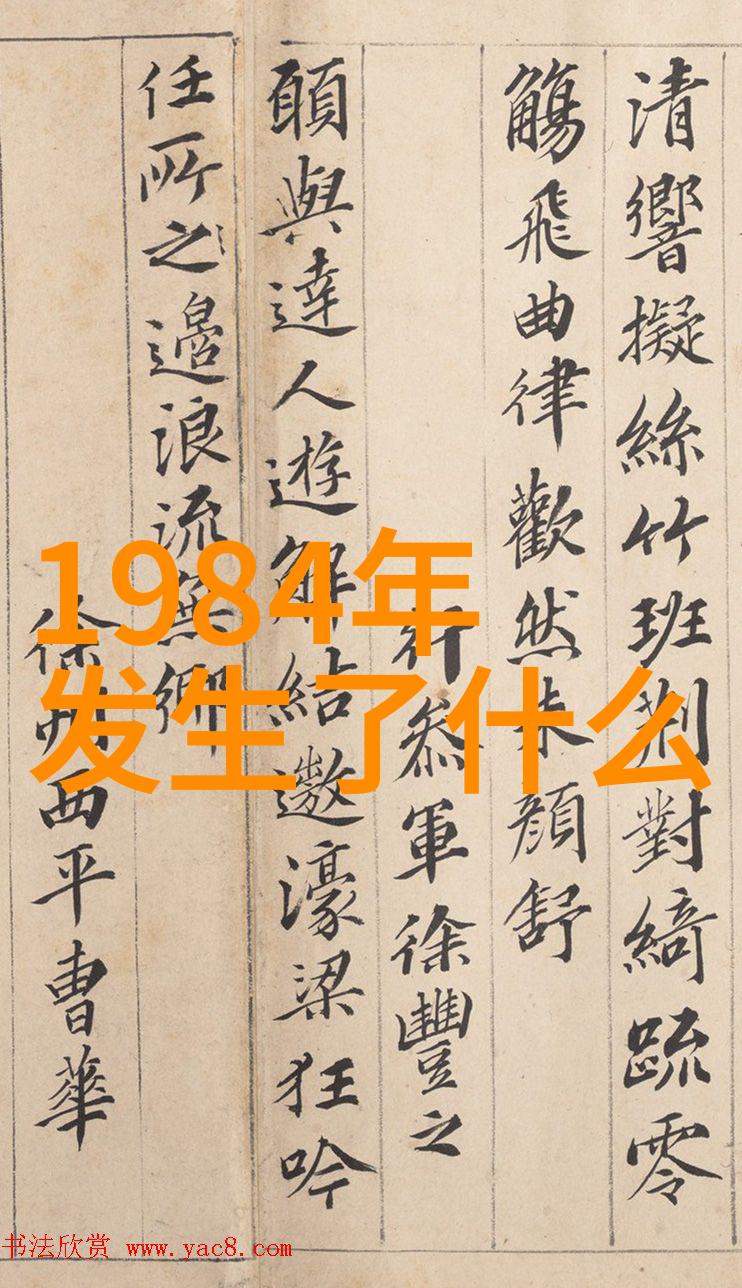 清響擬絲竹班荆對綺疏零
觴飛曲律歡然朱顏舒
行叅軍徐豐之
願與達人遊解結遨濠梁狂吟
任所之邉浪流無鄉
徐州西平曹華
1984年
发生了什么
书法欣赏 www.yac8.com